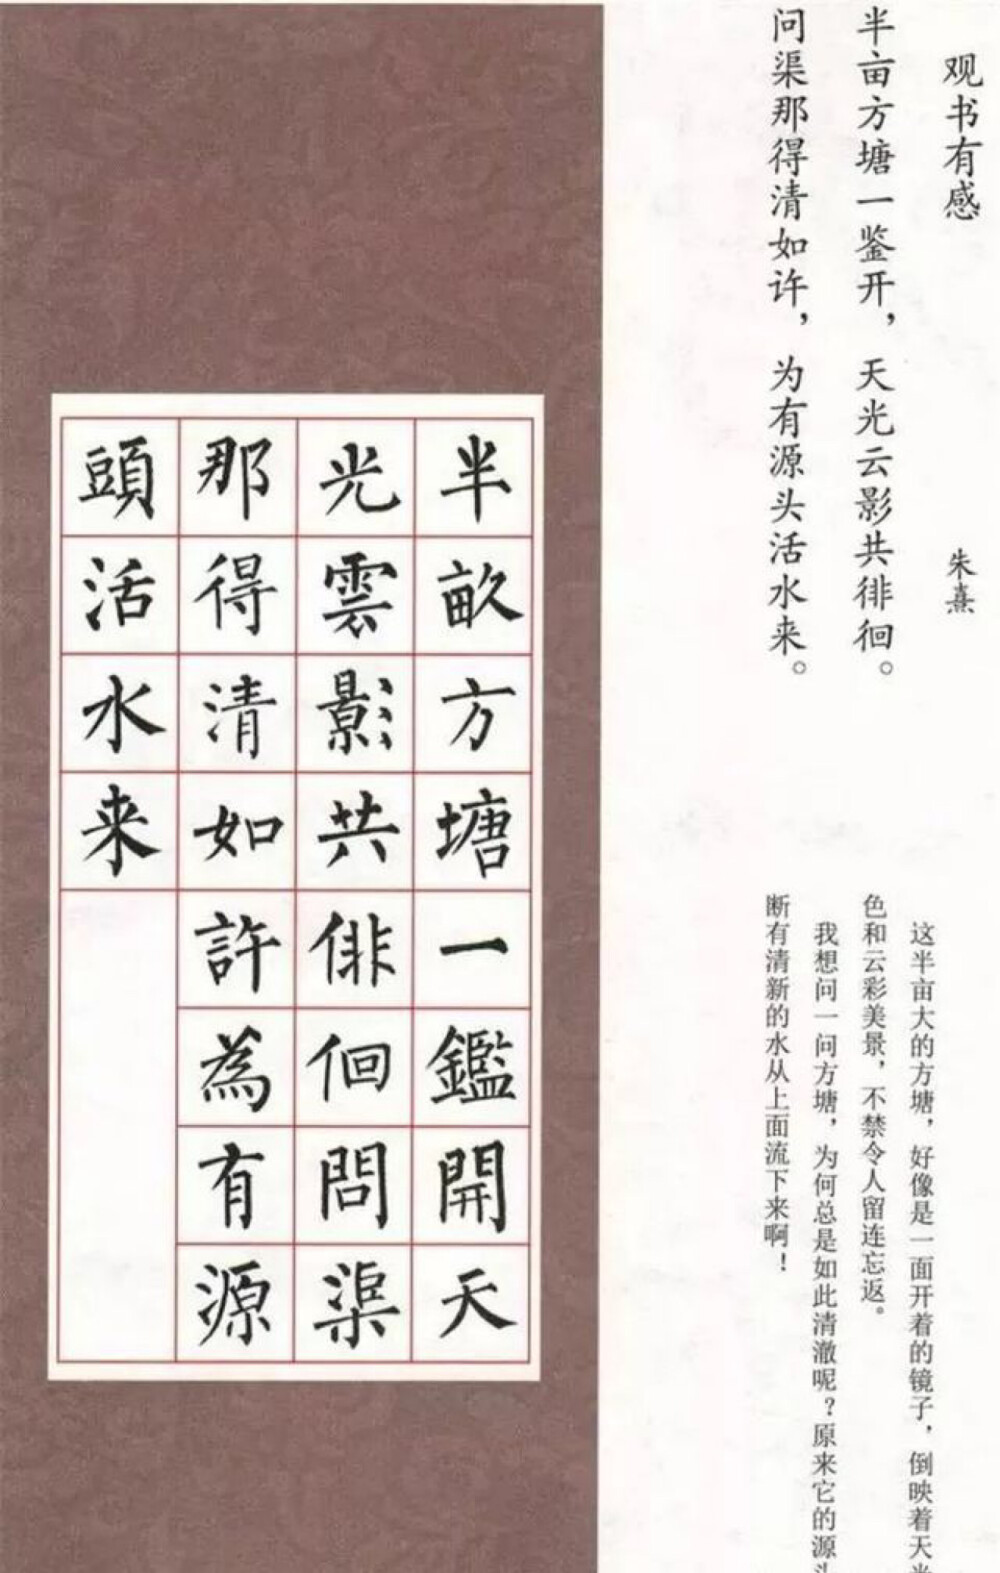 观书有感
朱熹
半亩方塘一鉴开，天光云影共徘徊。
问渠那得清如许，为有源头活水来。
这半亩大的方塘，好像是一面开着的镜子，倒映着天光
色和云彩美景，不禁令人留连忘返。
我想问一问方塘，为何总是如此清澈呢？原来它的源头
断有清新的水从上面流下来啊！
半畝方塘一鑑開天
光雲影共徘徊問渠
那得清如許為有源
頭活水来